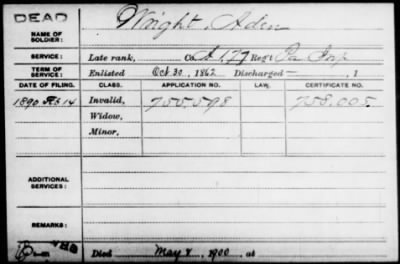 DEAD
NAME OF SOLDIER: Wright, Aden
SERVICE: Late rank, Co. A, 177 Reg't Pa Inf
TERM OF SERVICE: Enlisted Oct 30, 1862 Discharged — , 1
DATE OF FILING. CLASS. APPLICATION NO. LAW. CERTIFICATE NO.
1890 14 Invalid, 755.598 758.005
Widow,
Minor,
ADDITIONAL SERVICES:
REMARKS:
Died May 7, 1900, at